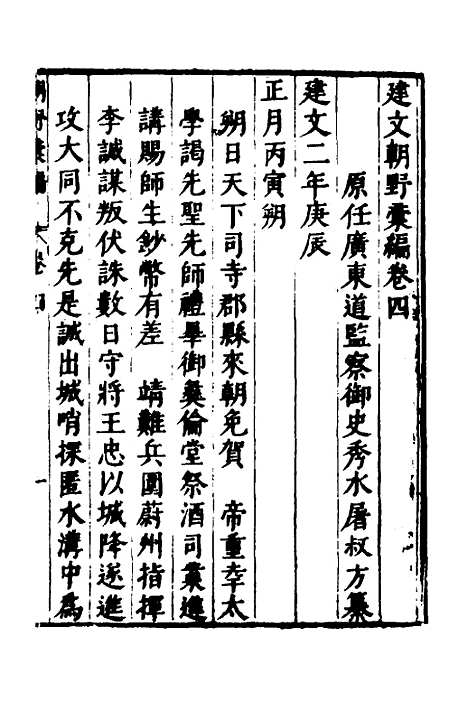 建文朝野彙編卷四
原任廣東道監察御史秀水屠叔方纂
建文二年庚辰
正月丙寅朔
朔日天下司寺郡縣來朝免賀　帝重幸太
學謁先聖先師禮畢御彝倫堂祭酒司業進
講賜師生鈔幣有差　靖難兵圍蔚州指揮
李誠謀叛伏誅數日守將王忠以城降遂進
攻大同不克先是誠出城哨探匿水溝中為
朝野彙編
卷四
一